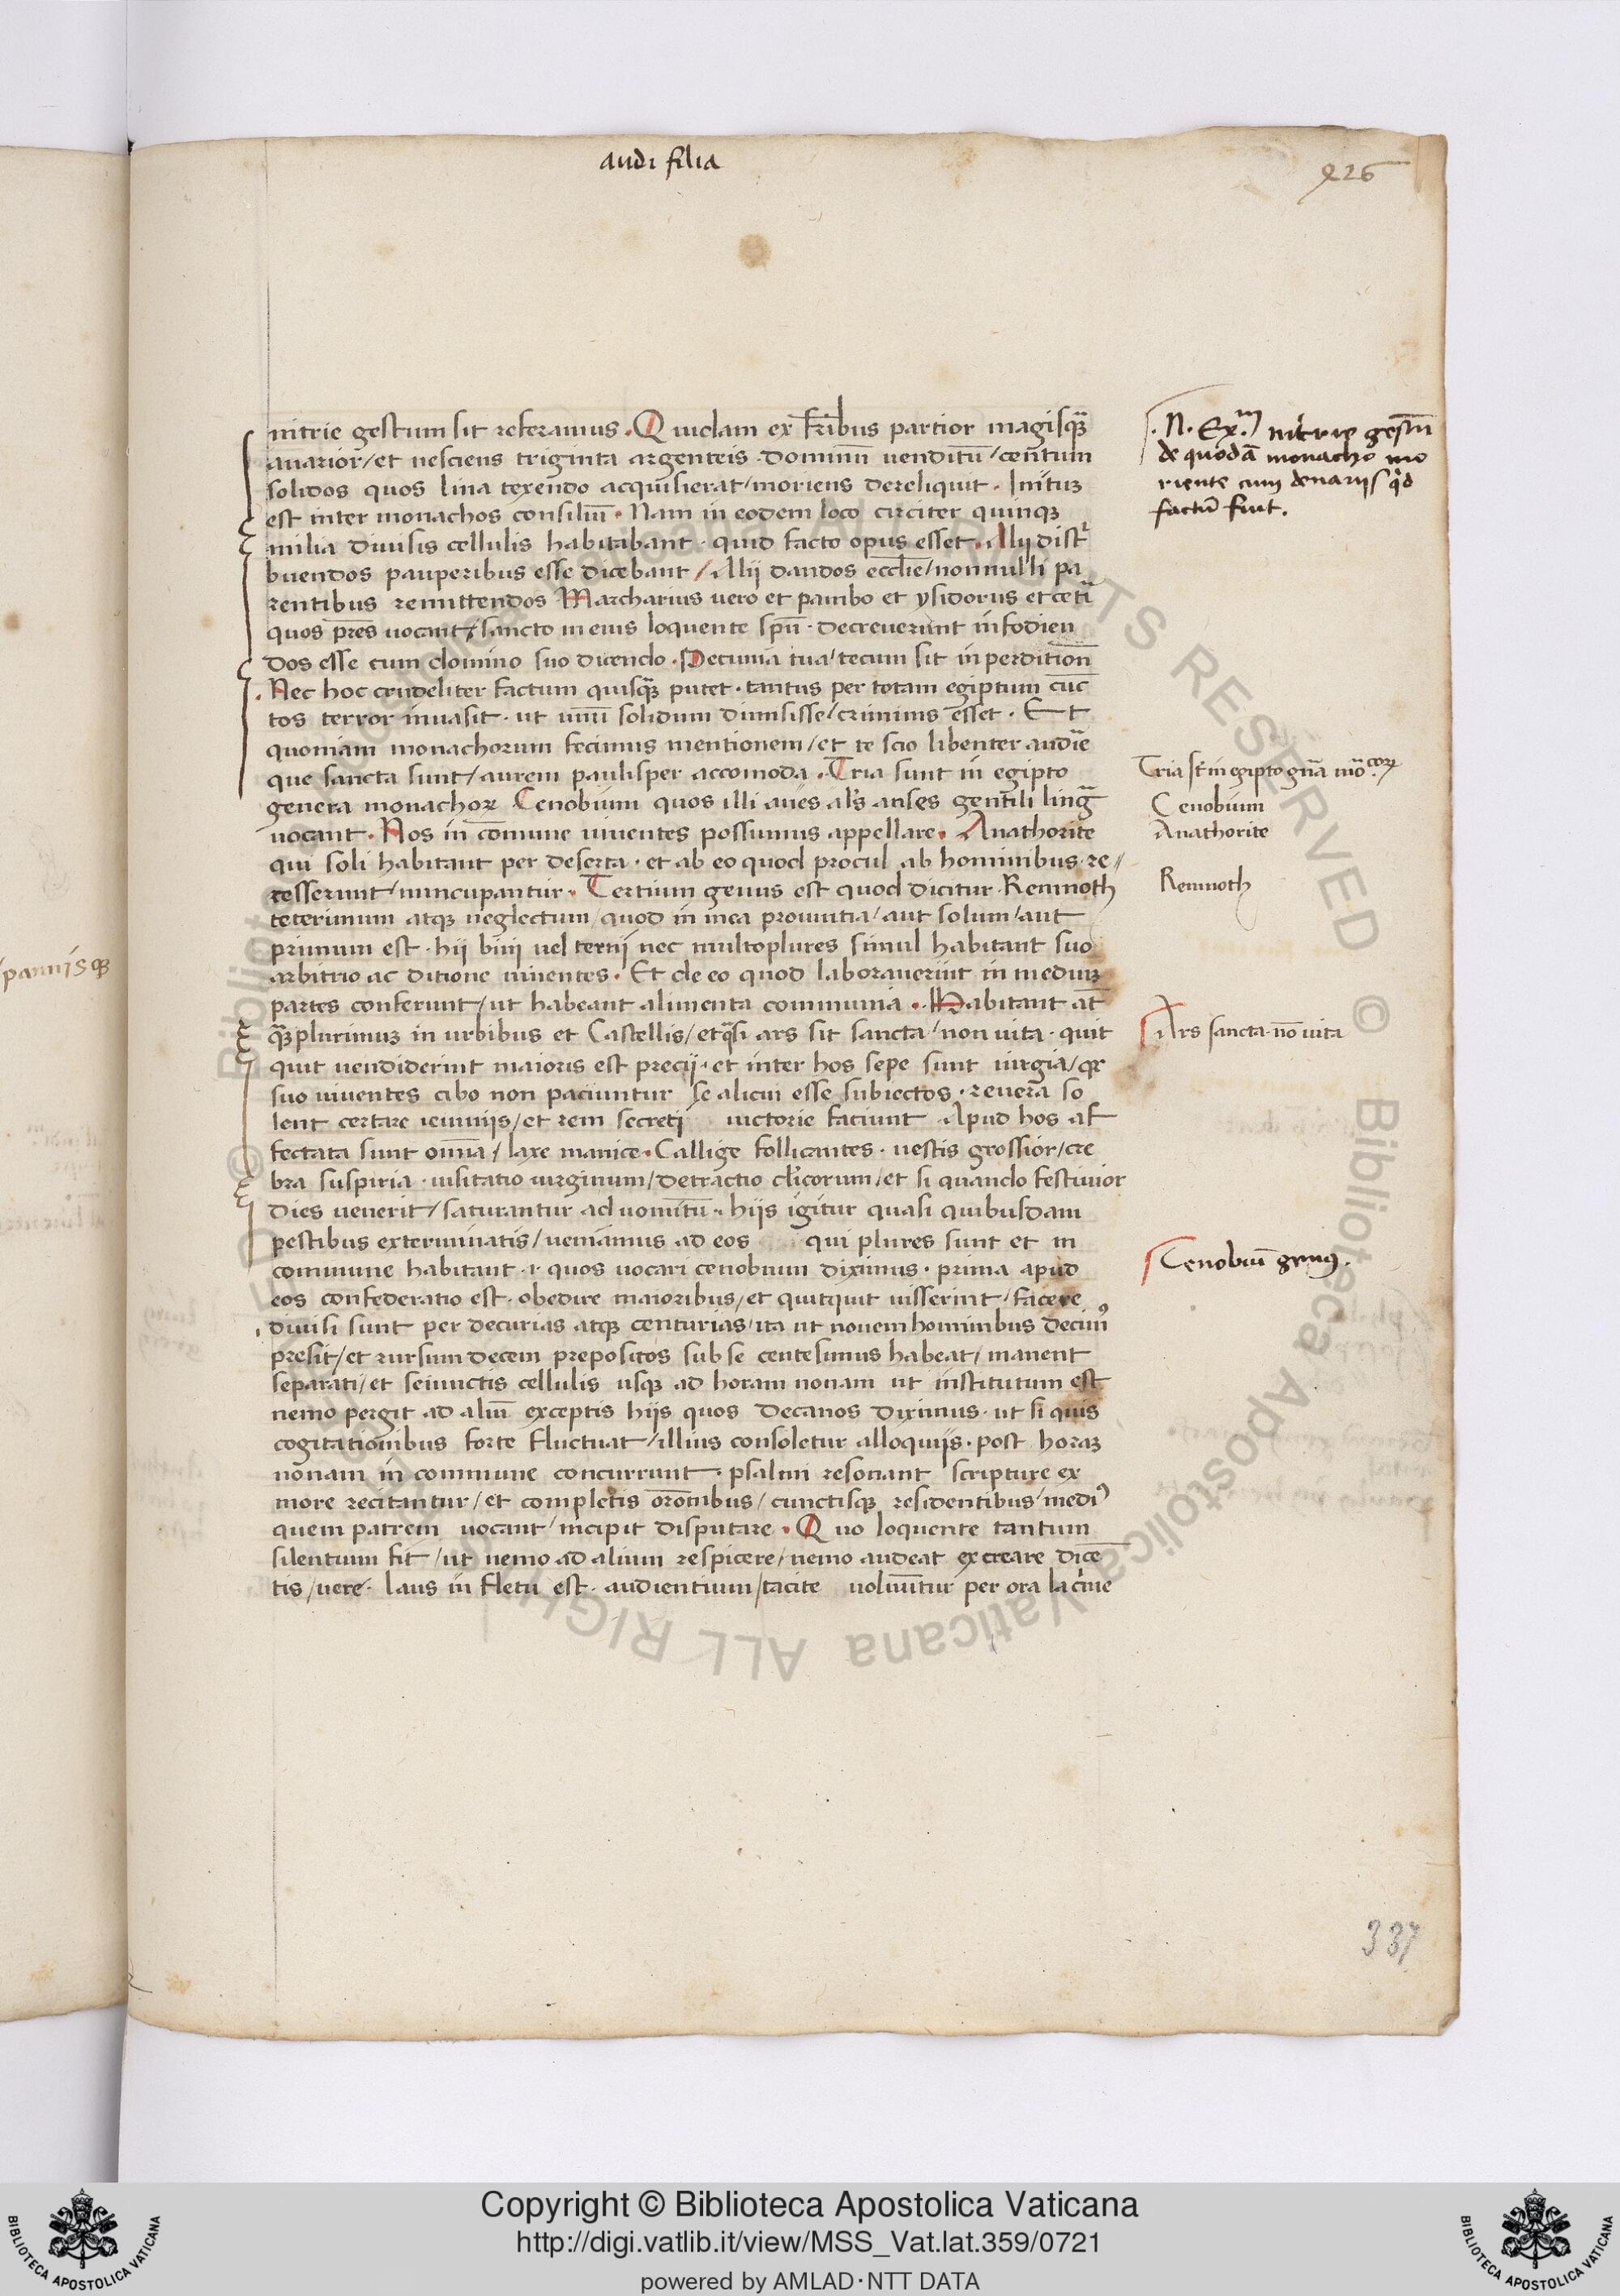 audi filia
226
nitrie gestum sit referamus. Quidam ex fr̄ibus partior magisqȝ
auarior/et nesciens triginta argenteis dominū uenditū/centum
solidos quos lina texendo acquisierat/moriens dereliquit. Initūȝ
est inter monachos consiliū. Nam in eodem loco circiter quinqȝ
milia diuisis cellulis habitabant. quid facto opus esset. Alij distr̄
buendos pauperibus esse dicebant/Alij dandos eccl̄ie/nonnulli pa
rentibus remittendos Marcharius uero et pambo et ysidorus et cet̄i
quos pr̄es uocant/sancto in eius loquente spū. decreuerunt infodien
dos esse cum domino suo dicendo. Pecunia tua/tecum sit in perditionē
.Nec hoc crudeliter factum quisqȝ putet. tantus per totam egiptum cūc
tos terror inuasit. ut unū solidum dimisisse/criminis esset. Et
quoniam monachorum fecimus mentionem/et te scio libenter audīe
que sancta sunt/aurem paulisper accomoda. Tria sunt in egipto
genera monachoꝝ Cenobium quos illi aues al's anses gentili lingā
uocant. Nos in cōmune uiuentes possumus appellare. Anathorite
qui soli habitant per deserta. et ab eo quod procul ab hominibus re//
cesserunt/nuncupantur. Tertium genus est quod dicitur Remnoth
teterimum atqȝ neglectum/quod in mea prouintia/aut solum/aut
primum est. hij bini uel terni nec multoplures simul habitant suo
arbitrio ac ditione uiuentes. Et de eo quod laborauerint in mediuȝ
partes conferunt/ut habeant alimenta communia. Habitant at̄
qȝplurimuȝ in urbibus et Castellis/et qāsi ars sit sancta/non uita. quit
quit uendiderint maioris est precij. et inter hos sepe sunt iurgia/qꝛ
suo uiuentes cibo non paciuntur se alicui esse subiectos. reuera so
lent certare ieiunijs/et rem secreti uictorie faciunt Apud hos af
fectata sunt omīa/laxe manice. Callige follicantes. uestis grossior/cre
bra suspiria. uisitatio uirginum/detractio cl̄icorum/et si quando festiuior
dies uenerit/saturantur ad uomitū. hijs igitur quasi quibusdam
pestibus exterminatis/ueniamus ad eos qui plures sunt et in
commune habitant .i. quos uocari cenobium diximus. prima apud
eos confederatio est. obedire maioribus/et quitquit iusserint/facere
diuisi sunt per decurias atqȝ centurias/ita ut nouem hominibus decimꝰ
presit/et rursum decem prepositos sub se centesimus habeat/manent
separati/et seiunctis cellulis usqȝ ad horam nonam ut institutum est
nemo pergit ad aliū exceptis hijs quos decanos diximus. ut si quis
cogitationibus forte fluctuat/illius consoletur alloquijs. post horaȝ
nonam in commune concurrunt. psalmi resonant scripture ex
more recitantur/et completis orōnibus/cunctisqȝ residentibus/mediꝰ
quem patrem uocant/incipit disputare. Quo loquente tantum
silentium fit/ut nemo ad alium respicere/nemo audeat excreare dicē
tis/uere. laus in fletu est. audientium/tacite uoluūtur per ora lac̄me
.N. Exm nitrie gestū
de quodā monacho mo
riente cum denarijs qd
factū fuit.
Tria st̄ in egipto gn̄a mōcoꝝ
Cenobium
Anathorite
Remnoth
Ars sancta nō uita
Cenobiū genus.
/pannisqȝ
337
Copyright © Biblioteca Apostolica Vaticana
http://digi.vatlib.it/view/MSS_Vat.lat.359/0721
powered by AMLAD·NTT DATA
BIBLIOTECA APOSTOLICA VATICANA
BIBLIOTECA APOSTOLICA VATICANA
© Biblioteca Apostolica Vaticana ALL RIGHTS RESERVED
© Biblioteca Apostolica Vaticana ALL RIGHTS RESERVED